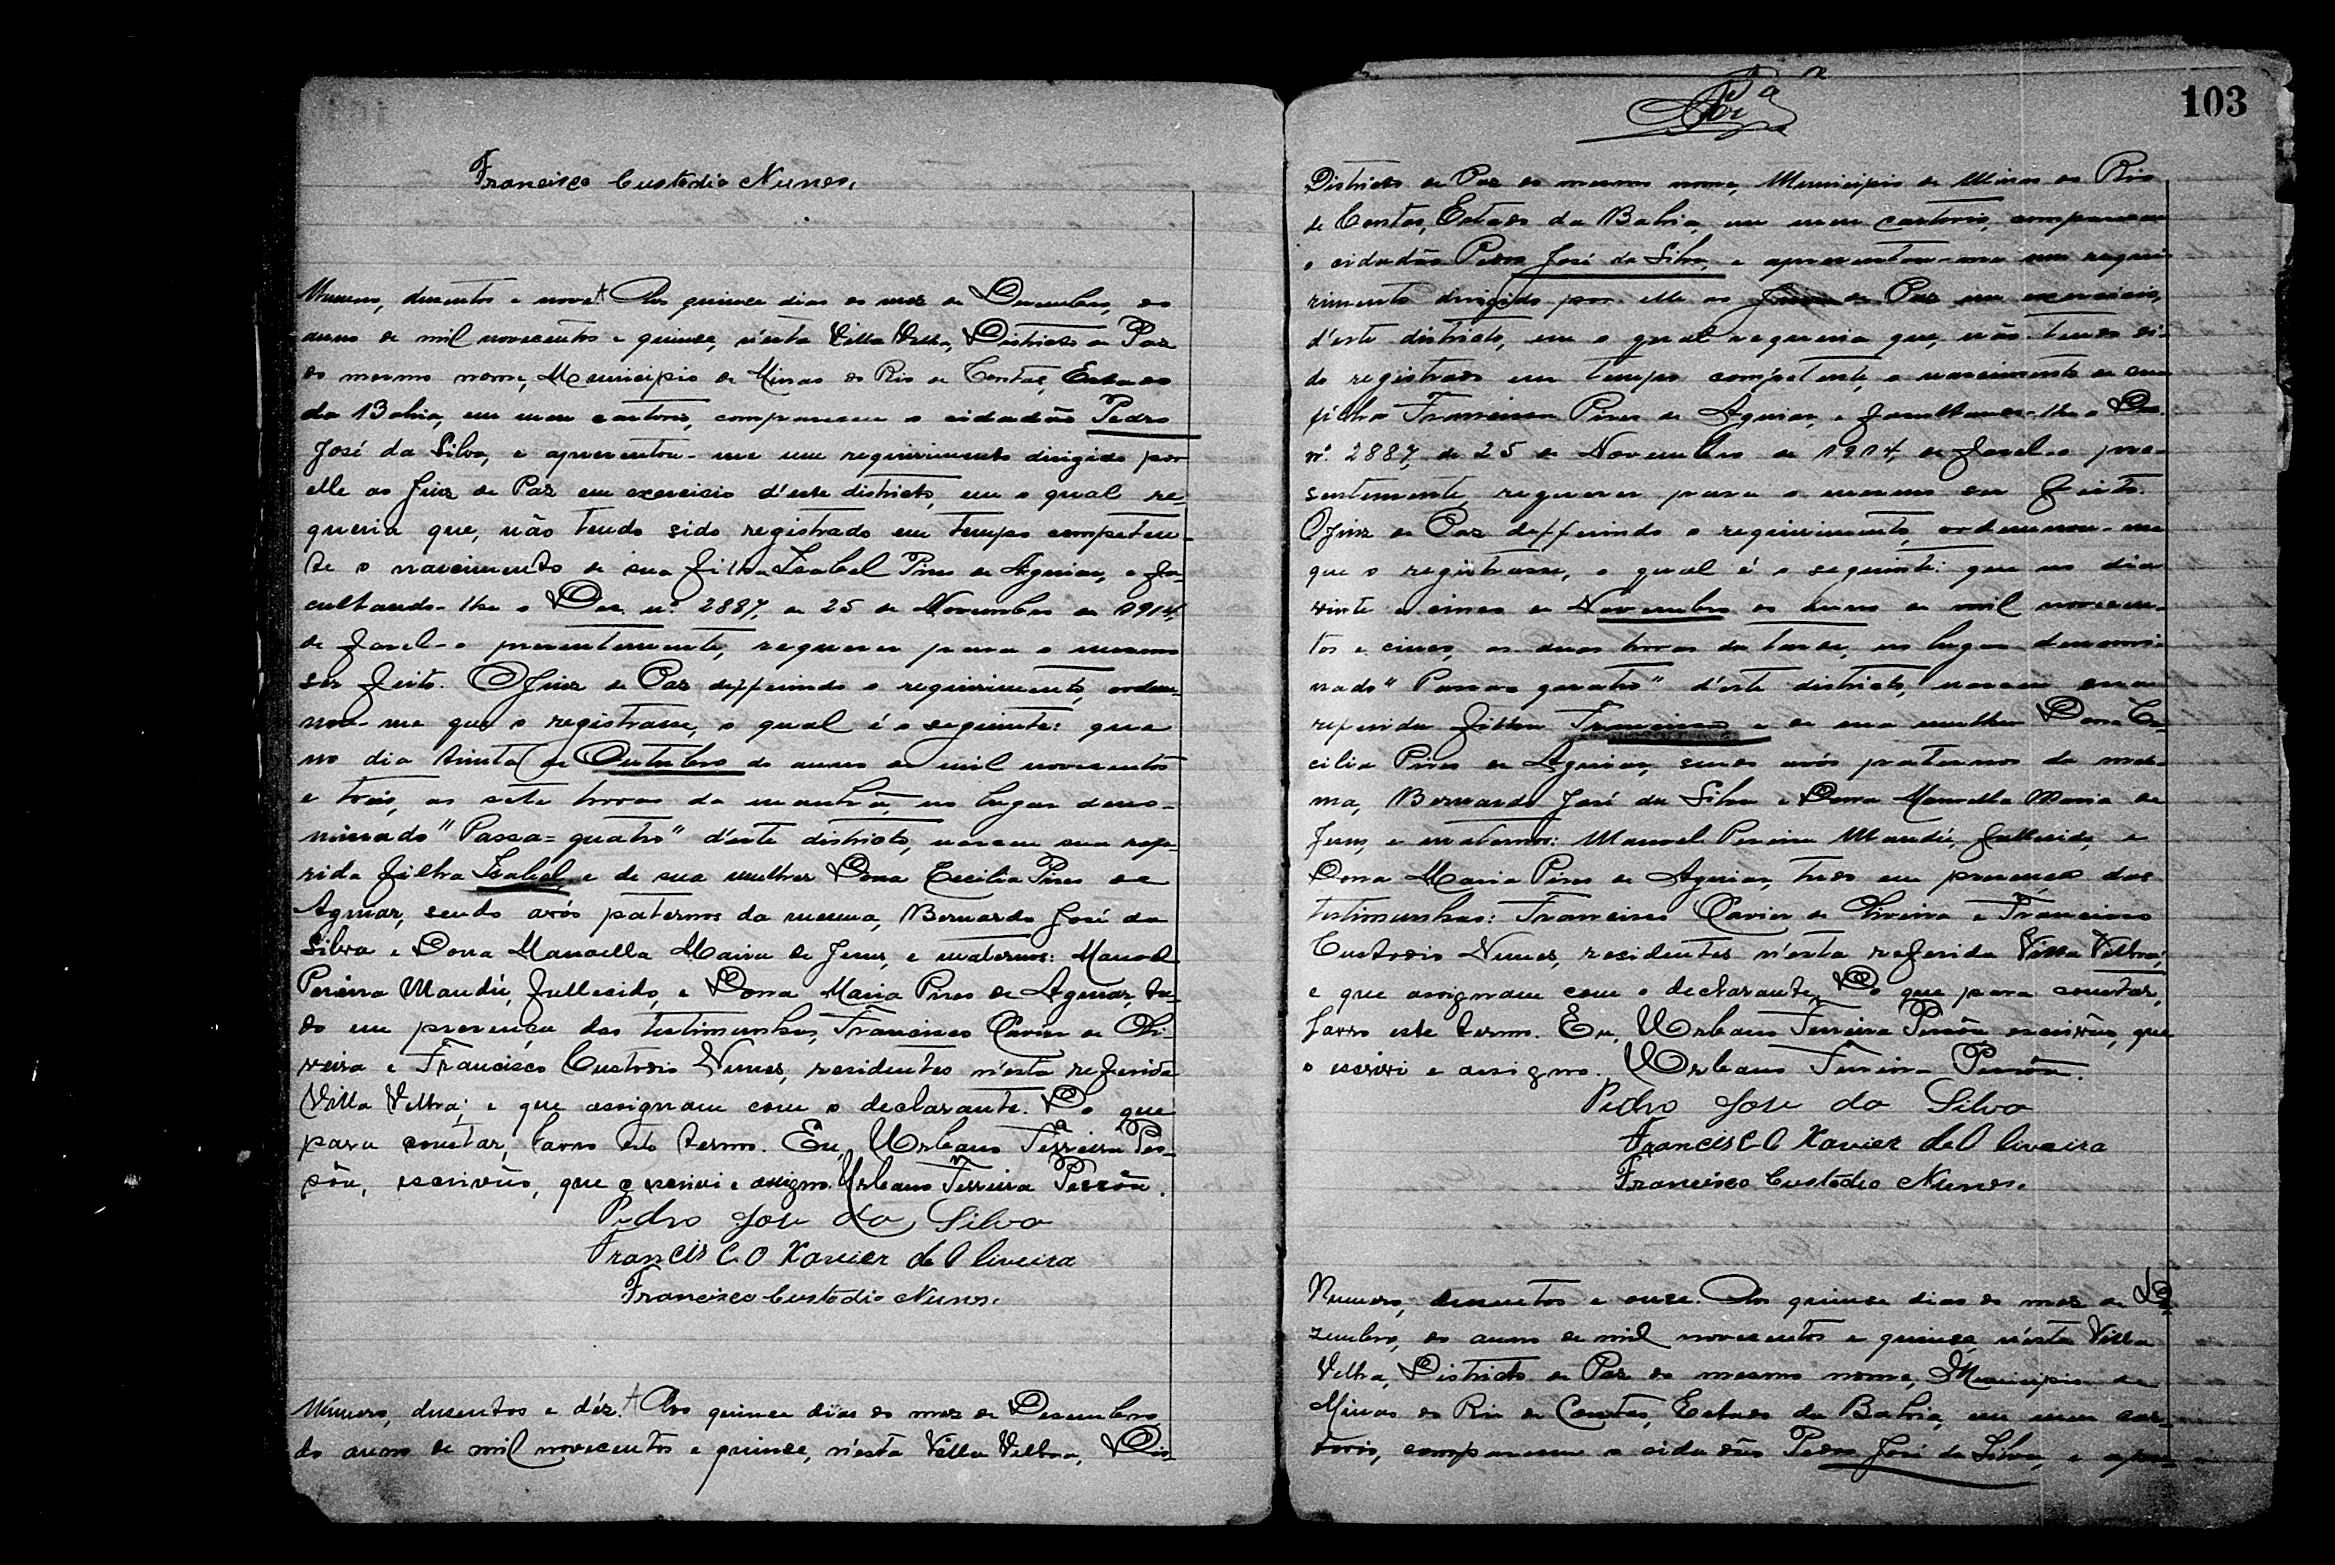 Francisco Custodio Nunes.
Numero, dusentos e nove. Aos quinse dias do mez de Dezembro, do
anno de mil novecentos e quinse, n'esta Villa Velha, Districto de Paz
do mesmo nome, Municipio de Minas do Rio de Contas, Estado
da Bahia, em meu cartorio, compareceu o cidadão Pedro
José da Silva, e apresentou-me um requirimento dirigido por
elle ao Juiz de Paz em exercicio d'este districto, em o qual re-
queria que, não tendo sido registrado em tempo competen-
te o nascimento de sua filha Izabel Pires de Aguiar, e fa-
cultando-lhe o Dec. nº 2887, de 25 de Novembro de 1914,
de fasel-o presentemente, requerer para o mesmo
ser feito. O Juiz de Paz defferindo o requirimento, orden-
nou-me que o registrasse, o qual é o seguinte: que
no dia trinta de Outubro do anno de mil novecentos
e trêis, as sete horas da manhã, no lugar deno-
minado "Passa=quatro" d'este districto, nasceu sua refe-
rida filha Izabel, e de sua mulher Dona Cecilia Pires de
Aguiar, sendo avós paternos da mesma, Bernardo José da
Silva e Dona Manoella Maria de Jesus, e maternos: Manoel
Pereira Mandú, fallecido, e Dona Maria Pires de Aguiar, tu-
do em presença das testimunhas, Francisco Xavier de Oli-
veira e Francisco Custodio Nunes, residentes n'esta referida
Villa Velha; e que assignam com o declarante. Do que
para constar, lavro este termo. Eu, Urbano Ferreira Pes-
sôa, escrivão, que o escrivi e assigno. Urbano Ferreira Pessôa.
Pedro Jose da Silva
Francisco Xavier de Oliveira
Francisco Custodio Nunes.
Numero, dusentos e déz. Aos quinse dias do mez de Desembro
do anno de mil novecentos e quinse, n'esta Villa Velha, Dis-
103
Districto de Paz do mesmo nome, Municipio de Minas do Rio
de Contas, Estado da Bahia, em meu cartorio, compareceu
o cidadão Pedro José da Silva, e apresentou-me um requi-
rimento dirigido por elle ao Juiz de Paz em exercicio,
d'este districto, em o qual requeria que, não tendo si-
do registrado em tempo competente, o nascimento de sua
filha Francisca Pires de Aguiar, e facultando-lhe o Dec.
nº. 2887, de 25 de Novembro de 1914, de fasel-o pre-
sentemente, requerer para o mesmo ser feito.
O Juiz de Paz defferindo o requirimento, ordennou-me
que o registrasse, o qual é o seguinte: que no dia
vinte e cinco de Novembro do anno de mil novecen-
tos e cinco, as duas horas da tarde, no lugar denomi-
nado "Passa quatro" d'este districto, nasceu sua
referida filha Francisca e de sua mulher Dona Ce-
cilia Pires de Aguiar, sendo avós paternos da mes-
ma, Bernardo José da Silva e Dona Manoella Maria de
Jesus, e maternos: Manoel Pereira Mandú, fallecido, e
Dona Maria Pires de Aguiar, tudo em presença das
testimunhas: Francisco Xavier de Oliveira e Francisco
Custodio Nunes, residentes n'esta referida Villa Velha;
e que assignam com o declarante. Do que para constar,
lavro este termo. Eu, Urbano Ferreira Pessôa escrivão, que
o escrivi e assigno. Urbano Ferreira Pessôa.
Pedro Jose da Silva
Francisco Xavier de Oliveira
Francisco Custodio Nunes.
Numero, dusentos e onse. Aos quinse dias do mez de De-
zembro, do anno de mil novecentos e quinse, n'esta Villa
Velha, Districto de Paz do mesmo nome, Municipio de
Minas do Rio de Contas, Estado da Bahia, em meu car-
torio, compareceu o cidadão Pedro José da Silva, e apre-